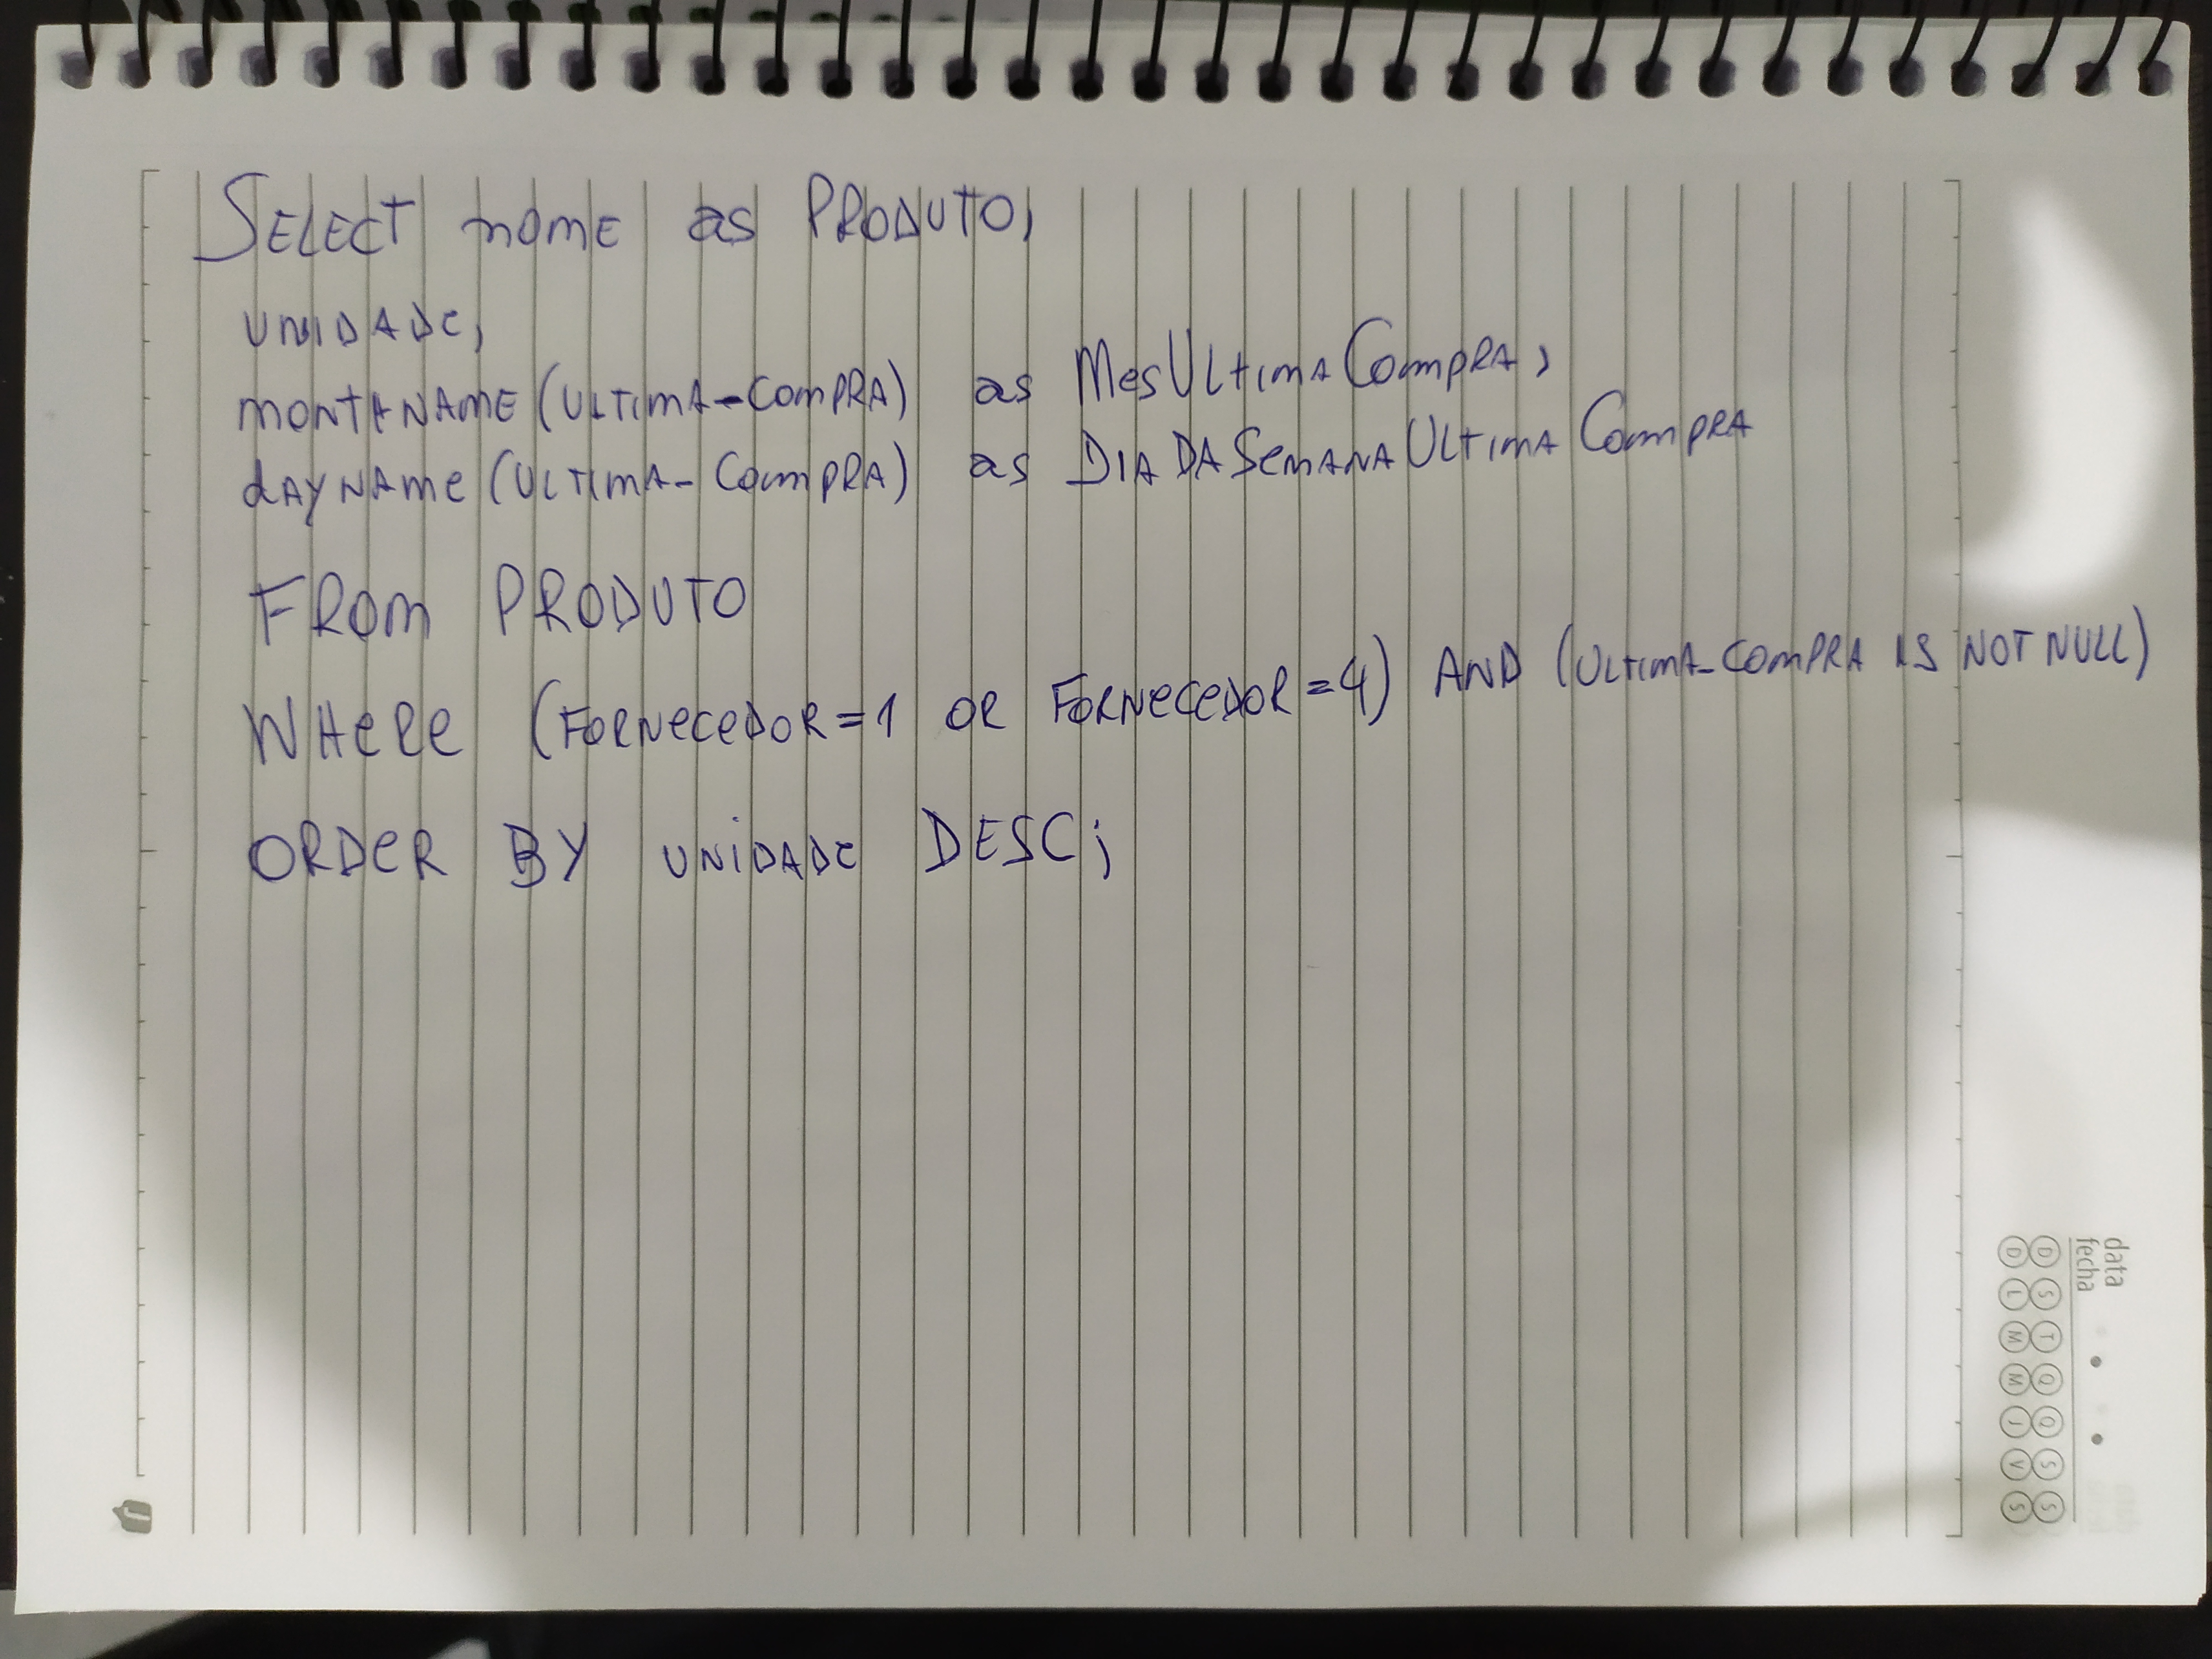 SELECT nome as PRODUTO,
UNIDADE,
MONTHNAME (ULTIMA-COMPRA) as MesULtimACompRA,
dAYNAMe (ULTIMA-CompRA) as DIADASemANAULtimACompRA
FROM PRODUTO
WHeRe (FORNeCeDOR=1 OR FORNeCeDOR=4) AND (ULtimA-COmPRA IS NOT NULL)
ORDeR BY UNiDADe DESC;
data
fecha
D S T Q Q S S
D L M M J V S